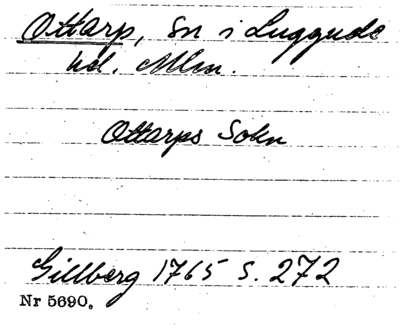 Ottarp, Sn i Luggude
hd. Mlm.
Ottarps Sokn
Gillberg 1765 s. 272
Nr 5690.